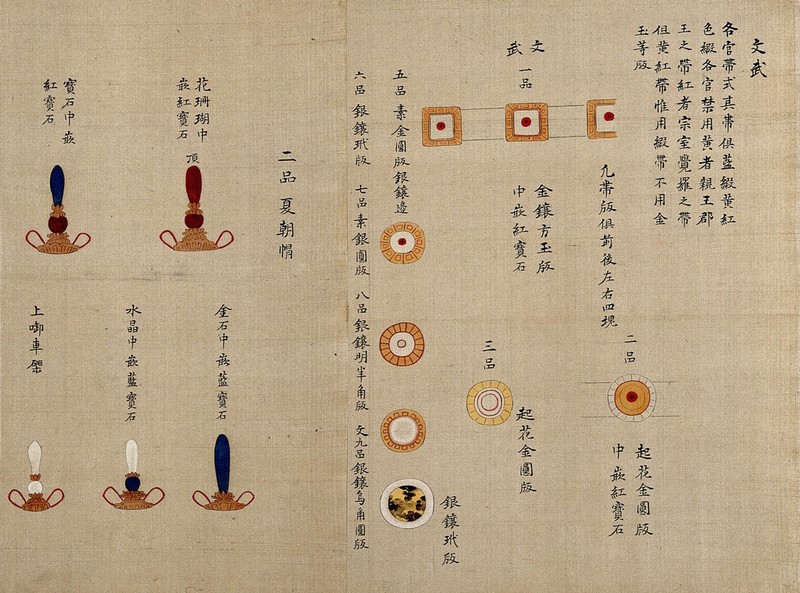 文武
各官帶式其帶俱藍緞黃紅
色緞各官禁用黃者親王郡
王之帶紅者宗室覺羅之帶
但黃紅帶惟用緞帶不用金
玉等版
文
武
一品
凢帶版俱前後左右四塊
金鑲方玉版
中嵌紅寶石
二品
起花金圓版
中嵌紅寶石
三品
起花金圓版
銀鑲玳版
五品 素金圓版銀鑲邉
六品 銀鑲玳版 七品素銀圓版 八品銀鑲明羊角版 文九品銀鑲烏角圓版
二品夏朝帽
頂
花珊瑚中
嵌紅寶石
寶石中嵌
紅寶石
金石中嵌藍寶石
水晶中嵌藍寶石
上啣車